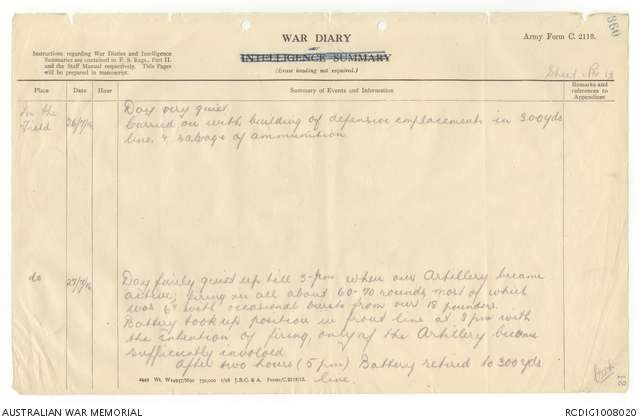 WAR DIARY
or
INTELLIGENCE SUMMARY
(Erase heading not required.)
Army Form C. 2118.
360
Instructions regarding War Diaries and Intelligence
Summaries are contained in F. S. Regs., Part II.
and the Staff Manual respectively. Title Pages
will be prepared in manuscript.
Sheet No 13
Place
Date
Hour
Summary of Events and Information
Remarks and
references to
Appendices
In the
Field
26/7/16
Day very quiet
Carried on with building of defensive emplacements in 300 yds
line & salvage of ammunition
do
27/7/16
Day fairly quiet up till 3-pm when our Artillery became
active, firing in all about 60-70 rounds most of which
was 6" with occasional bursts from our 18 pounders.
Battery took up position in front line at 3 pm with
the intention of firing, only if the Artillery became
sufficiently involved
After two hours (5 pm) Battery retired to 300 yds
line.
2449 Wt. W14957/M90 750,000 1/16 J.B.C. & A. Forms/C.2118/12.
12
AUSTRALIAN WAR MEMORIAL
RCDIG1008020